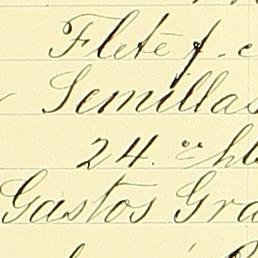 Flete f. c
Semillas
24. " hl
Gastos Gra